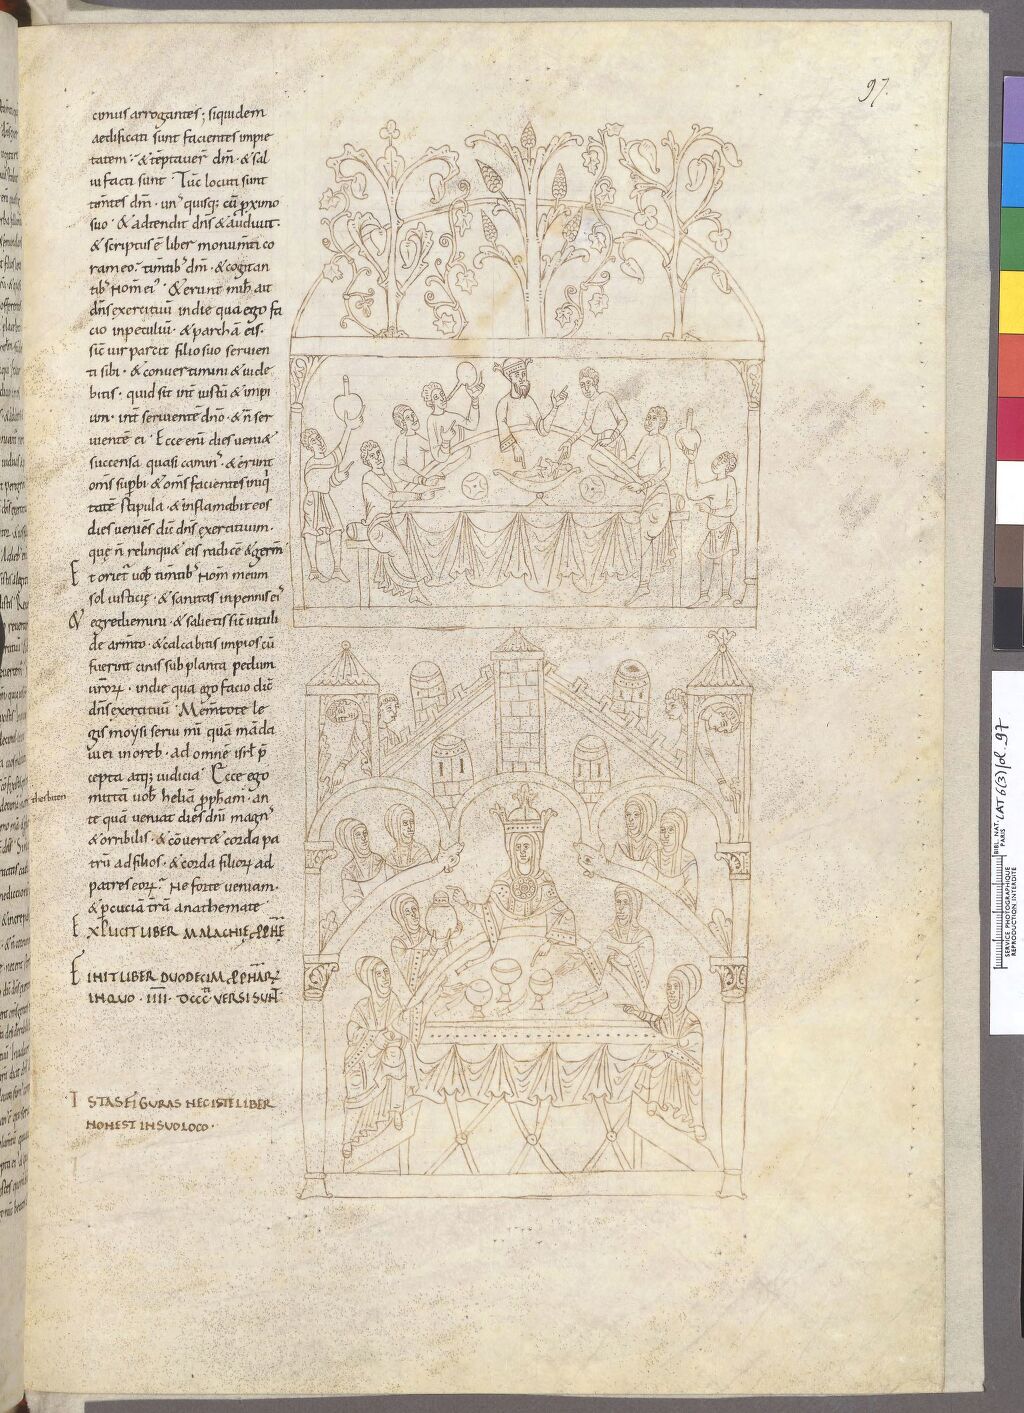 97.
cimus arrogantes; siquidem
aedificati sunt facientes impie
tatem· & tēptauer dm̄· & sal
ui facti sunt Tūc locuti sunt
tim̄tes dm̄· unꝰ quisq; cū pximo
suo· & adtendit dn̄s & audiuit·
& scriptus ē liber monum̄ti co
ram eo· tim̄tibꝰ dm̄· & cogitan
tibꝰ nom̄ eiꝰ· & erunt mih ait
dn̄s exercituū in die qua ego fa
cio in peculiū· & parcā eis·
sic̄ uir parcit filio suo seruien
ti sibi· & conuertimini & uide
bitis· quid sit int̄ iustū & impi
um· int̄ seruientē dn̄o· & n̄ ser
uientē ei Ecce eni dies ueni&
succensa quasi camin· & erunt
om̄s supbi & om̄s facientes iniq
tatē stipula· & inflamabit eos
dies ueniēs dic̄ dn̄s exercituum·
quę n̄ relinqu& eis radicē & germ̄
Et oriet uob tim̄tibꝰ nom̄ meum
sol iusticię· & sanitas in pennis eiꝰ
& egrediemini· & salietis sic̄ uituli
de arm̄to· & calcabitis impios cū
fuerint cinis sub planta pedum
uroꝝ· in die qua ego facio dic̄
dn̄s exercituū Mem̄tote le
gis moysi serui mi quā māda
ui ei in oreb· ad omnē isrl p̄
cepta atq; iudicia Ecce ego
mittā uob heliā pph̄am· an
te quā ueniat dies dn̄i magnꝰ
& orribilis· & cōuert& corda pa
trū ad filios· & corda filioꝝ ad
patres eoꝝ· ne forte ueniam·
& pcuciā t̄rā anathemate
EXPLICIT LIBER MALACHIĘ PPHĘ
FINIT LIBER DUODECIM PPHARꝜ
IN QUO· IIII· DCCC VERSI SUNT
ISTAS FIGURAS NEC ISTE LIBER
NON EST IN SUO LOCO·
BIBL. NAT.
PARIS
LAT 6(3) fol. 97
SERVICE PHOTOGRAPHIQUE
REPRODUCTION INTERDITE